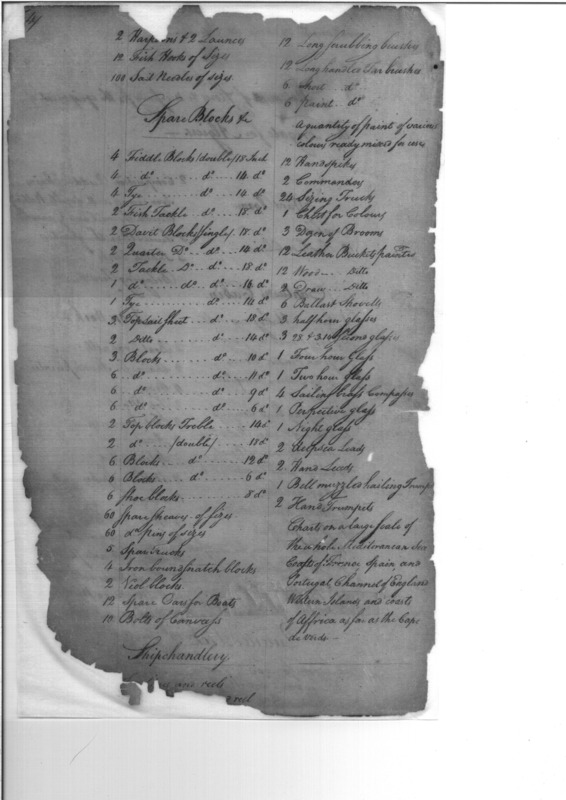 2 Harpoons & 2 Launces
12 Fish Hooks of Sizes
100 Sail Needles of sizes
Spare Blocks &c
4 Fiddle Blocks (double) 18 Inch
4 .. do .. do .. 14 do
4 Tye .. do .. 14 do
2 Fish Tackle .. do .. 18 do
2 Davit Blocks (Single) . 18 do
2 Quarter Do .. do .. 14 do
2 Tackle Do .. do .. 18 do
1 do .. do .. do .. 16 do
1 Tye .. do .. 14 do
3 Topsail Sheet .. do .. 18 do
2 Ditto .. 14 do
3 Block .. do .. 10 do
6 do .. do .. 11 do
6 do .. do .. 9 do
6 do .. do .. 6 do
2 Top blocks Treble .. 14 do
2 do (double) .. 11 do
6 Blocks .. do .. 12 do
6 Blocks .. do .. 6 do
6 Shoe blocks .. 8 do
60 Spare sheaves of Sizes
60 do Pins of sizes
5 Spare trucks
4 Iron bound snatch blocks
2 Viol blocks
12 Spare Oars for Boats
10 Bolts of Canvass
Shipchandlery
and reels
reel
12 Long scrubbing brushes
12 Long handled Tar brushes
6 short do
6 paint do
A quantity of paint of various
colours ready mixed for use
12 Handspikes
2 Commanders
24 Sizing Trucks
1 Chest for Colours
3 Dozn of Brooms
12 Leather Buckets painted
12 Wood .. Ditto
2 Draw .. Ditto
6 Ballast Shovells
3 half hour glasses
3 28 & 3 14 Second glasses
1 Four hour Glass
1 Two hour Glass
4 Sailing brass Compasses
1 Perspective glass
1 Night glass
2 Deepsea Leads
2 Hand Leads
1 Bell muzzled hailing Trump
2 Hand Trumpets
Charts on a large Scale of
the whole Mediterranean Sea
Coasts of France Spain and
Portugal Channel of England
Western Islands and coasts
of Affrica as far as the Cape
de Verde